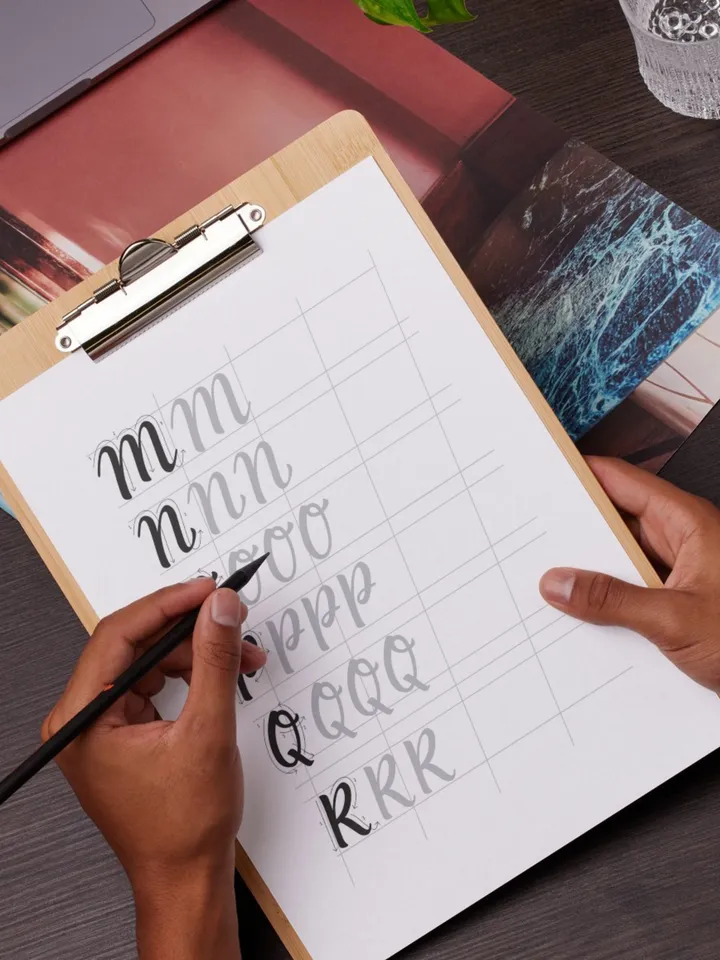 M M
N N N
O O O
P P P P
Q Q Q Q
R R R